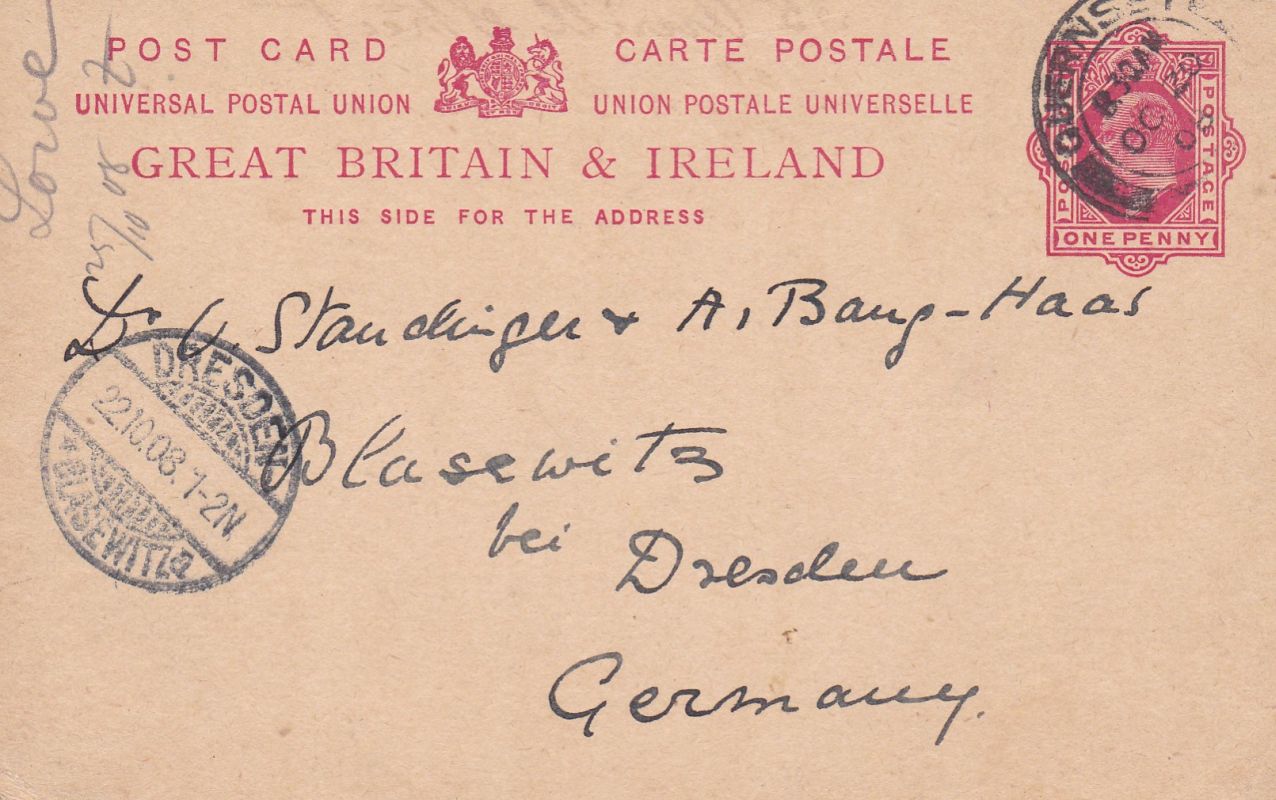 POST CARD CARTE POSTALE
UNIVERSAL POSTAL UNION UNION POSTALE UNIVERSELLE
GREAT BRITAIN & IRELAND
THIS SIDE FOR THE ADDRESS
POSTAGE
ONE PENNY
GUERNSEY
OC
08
Lowe
25/10 08
Dr O. Staudinger & A. Bang-Haas
Blasewitz
bei
Dresden
Germany.
DRESDEN
22.10.08. 1-2N.
BLASEWITZ